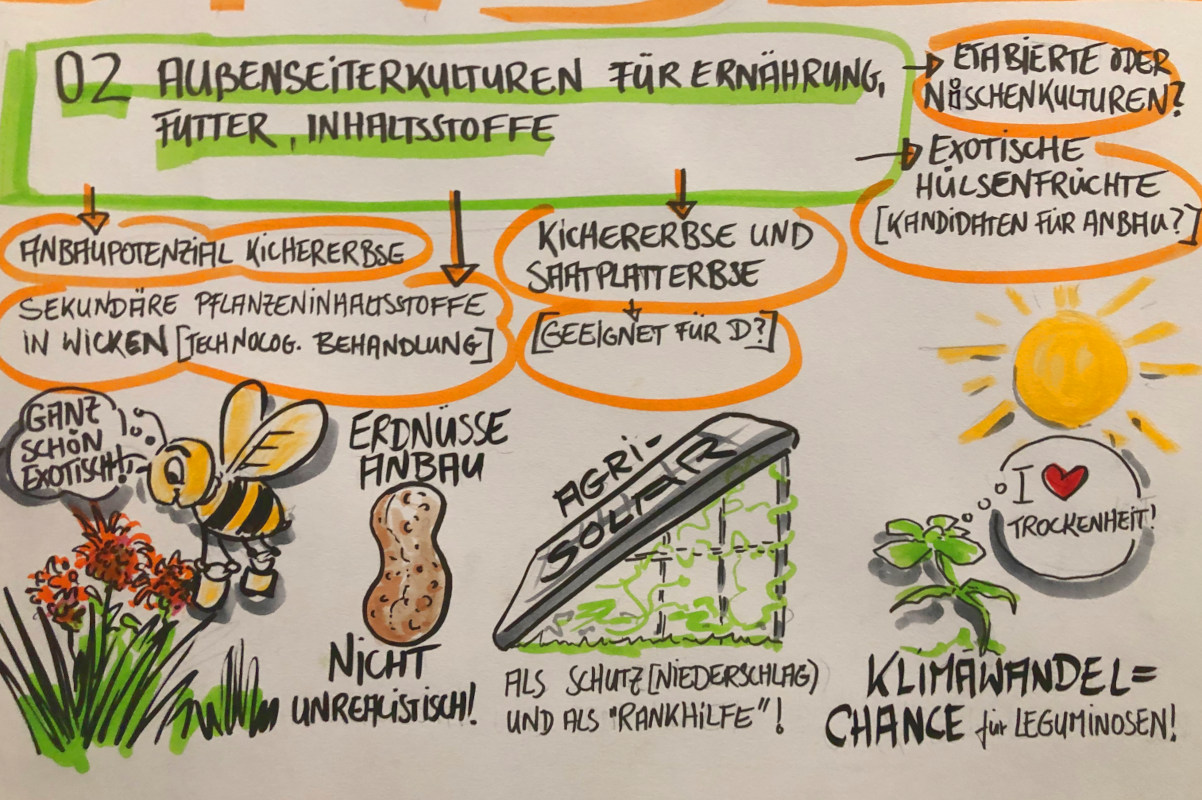 02 AUßENSEITERKULTUREN FÜR ERNÄHRUNG,
FUTTER, INHALTSSTOFFE
ETABIERTE ODER
NiSCHENKULTUREN?
EXOTISCHE
HÜLSENFRÜCHTE
[KANDIDATEN FÜR ANBAU?]
ANBAUPOTENZIAL KICHERERBSE
SEKUNDÄRE PFLANZENINHALTSSTOFFE
IN WICKEN [TECHNOLOG. BEHANDLUNG]
KICHERERBSE UND
SAATPLATTERBSE
[GEEIGNET FÜR D?]
GANZ
SCHÖN
EXOTISCH!
ERDNÜSSE
ANBAU
NICHT
UNREALISTISCH!
AGRI-
SOLAR
ALS SCHUTZ [NIEDERSCHLAG)
UND ALS "RANKHILFE"!
I ❤
TROCKENHEIT!
KLIMAWANDEL=
CHANCE für LEGUMINOSEN!